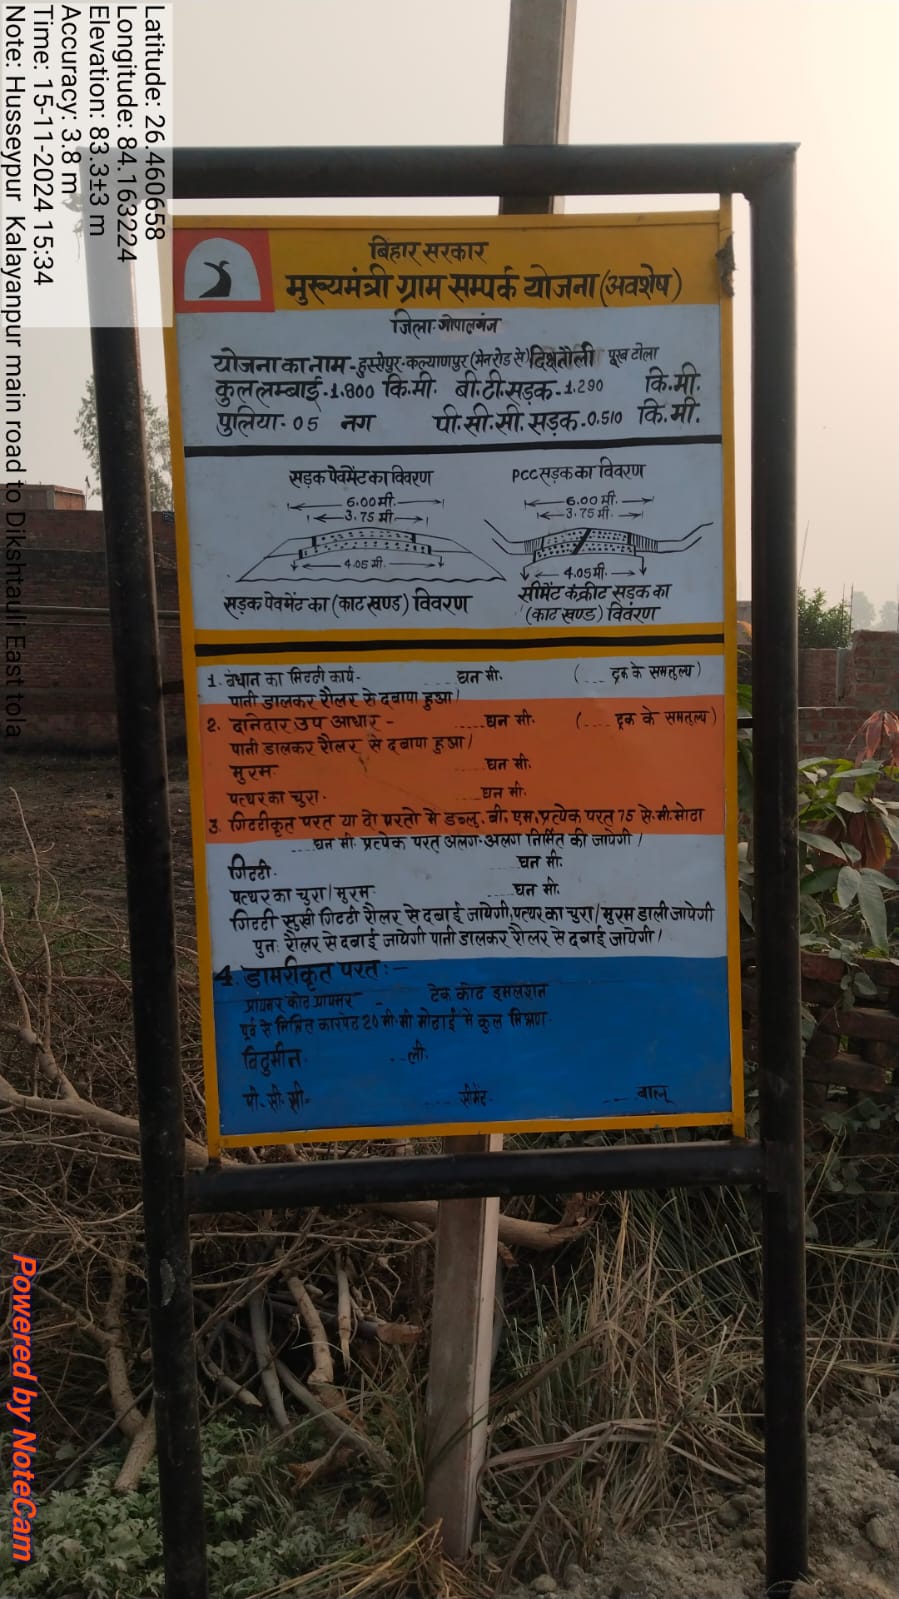 Latitude: 26.460658
Longitude: 84.163224
Elevation: 83.3±3 m
Accuracy: 3.8 m
Time: 15-11-2024 15:34
Note: Husseypur Kalayanpur main road to Dikshtauli East tola
बिहार सरकार
मुख्यमंत्री ग्राम सम्पर्क योजना (अवशेष)
जिला-गोपालगंज
योजना का नाम - हुस्सेपुर-कल्याणपुर (मेनरोड से) दिक्षितौली पूरब टोला
कुल लम्बाई-1.800 कि.मी. बी.टी.सड़क-1.290 कि.मी.
पुलिया-05 नग पी.सी.सी. सड़क-0.510 कि.मी.
सड़क पेवमेंट का विवरण
6.00 मी.
3.75 मी.
4.05 मी.
सड़क पेवमेंट का (काट खण्ड) विवरण
PCC सड़क का विवरण
6.00 मी.
3.75 मी.
4.05 मी.
सीमेंट कंक्रीट सड़क का
(काट खण्ड) विवरण
1. बंधान का मिटटी कार्य- ....घन मी. (.... ट्रक के समतुल्य)
पानी डालकर रौलर से दबाया हुआ।
2. दानेदार उप आधार - ......घन मी. (.... ट्रक के समतुल्य)
पानी डालकर रौलर से दबाया हुआ।
मुरम ......घन मी.
पत्थर का चुरा. ......घन मी.
3. गिटटीकृत परत या दो परतो में डब्लु. बी. एम. प्रत्येक परत 75 से.मी. मोटा
......घन मी. प्रत्येक परत अलग-अलग निर्मित की जायेगी।
गिटटी. घन मी.
पत्थर का चुरा/मुरम घन मी.
गिटटी सुखी गिटटी रौलर से दबाई जायेगी, पत्थर का चुरा/मुरम डाली जायेगी
पुनः रौलर से दबाई जायेगी पानी डालकर रौलर से दबाई जायेगी।
4. डामरीकृत परत :-
प्रायमर कोट प्रायमर - टेक कोट इमलशन
पूर्व से निर्मित कारपेट 20 मी.मी मोटाई में कुल मिश्रण.
विटुमीन. ...ली.
पी.सी.सी. ....सीमेंट ....बालू
Powered by NoteCam